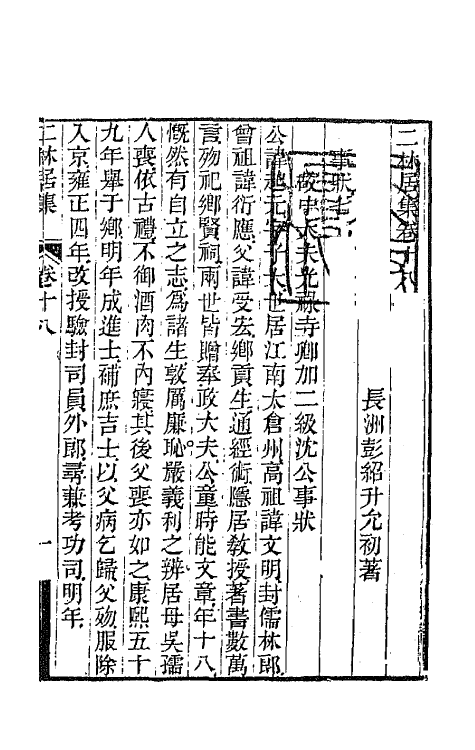 二林居集卷十八
長洲彭紹升允初著
事狀
中大夫光祿寺卿加二級沈公事狀
公諱起元字子大世居江南太倉州高祖諱文明封儒林郎
曾祖諱衍應父諱受宏鄉貢生通經術隱居敎授著書數萬
言歿祀鄉賢祠兩世皆贈奉政大夫公童時能文章年十八
慨然有自立之志爲諸生敦厲廉恥嚴義利之辨居母吳孺
人喪依古禮不御酒肉不內寢其後父喪亦如之康熙五十
九年舉于鄉明年成進士補庶吉士以父病乞歸父歿服除
入京雍正四年改授驗封司員外郎尋兼考功司明年
二林居集
卷十八
一